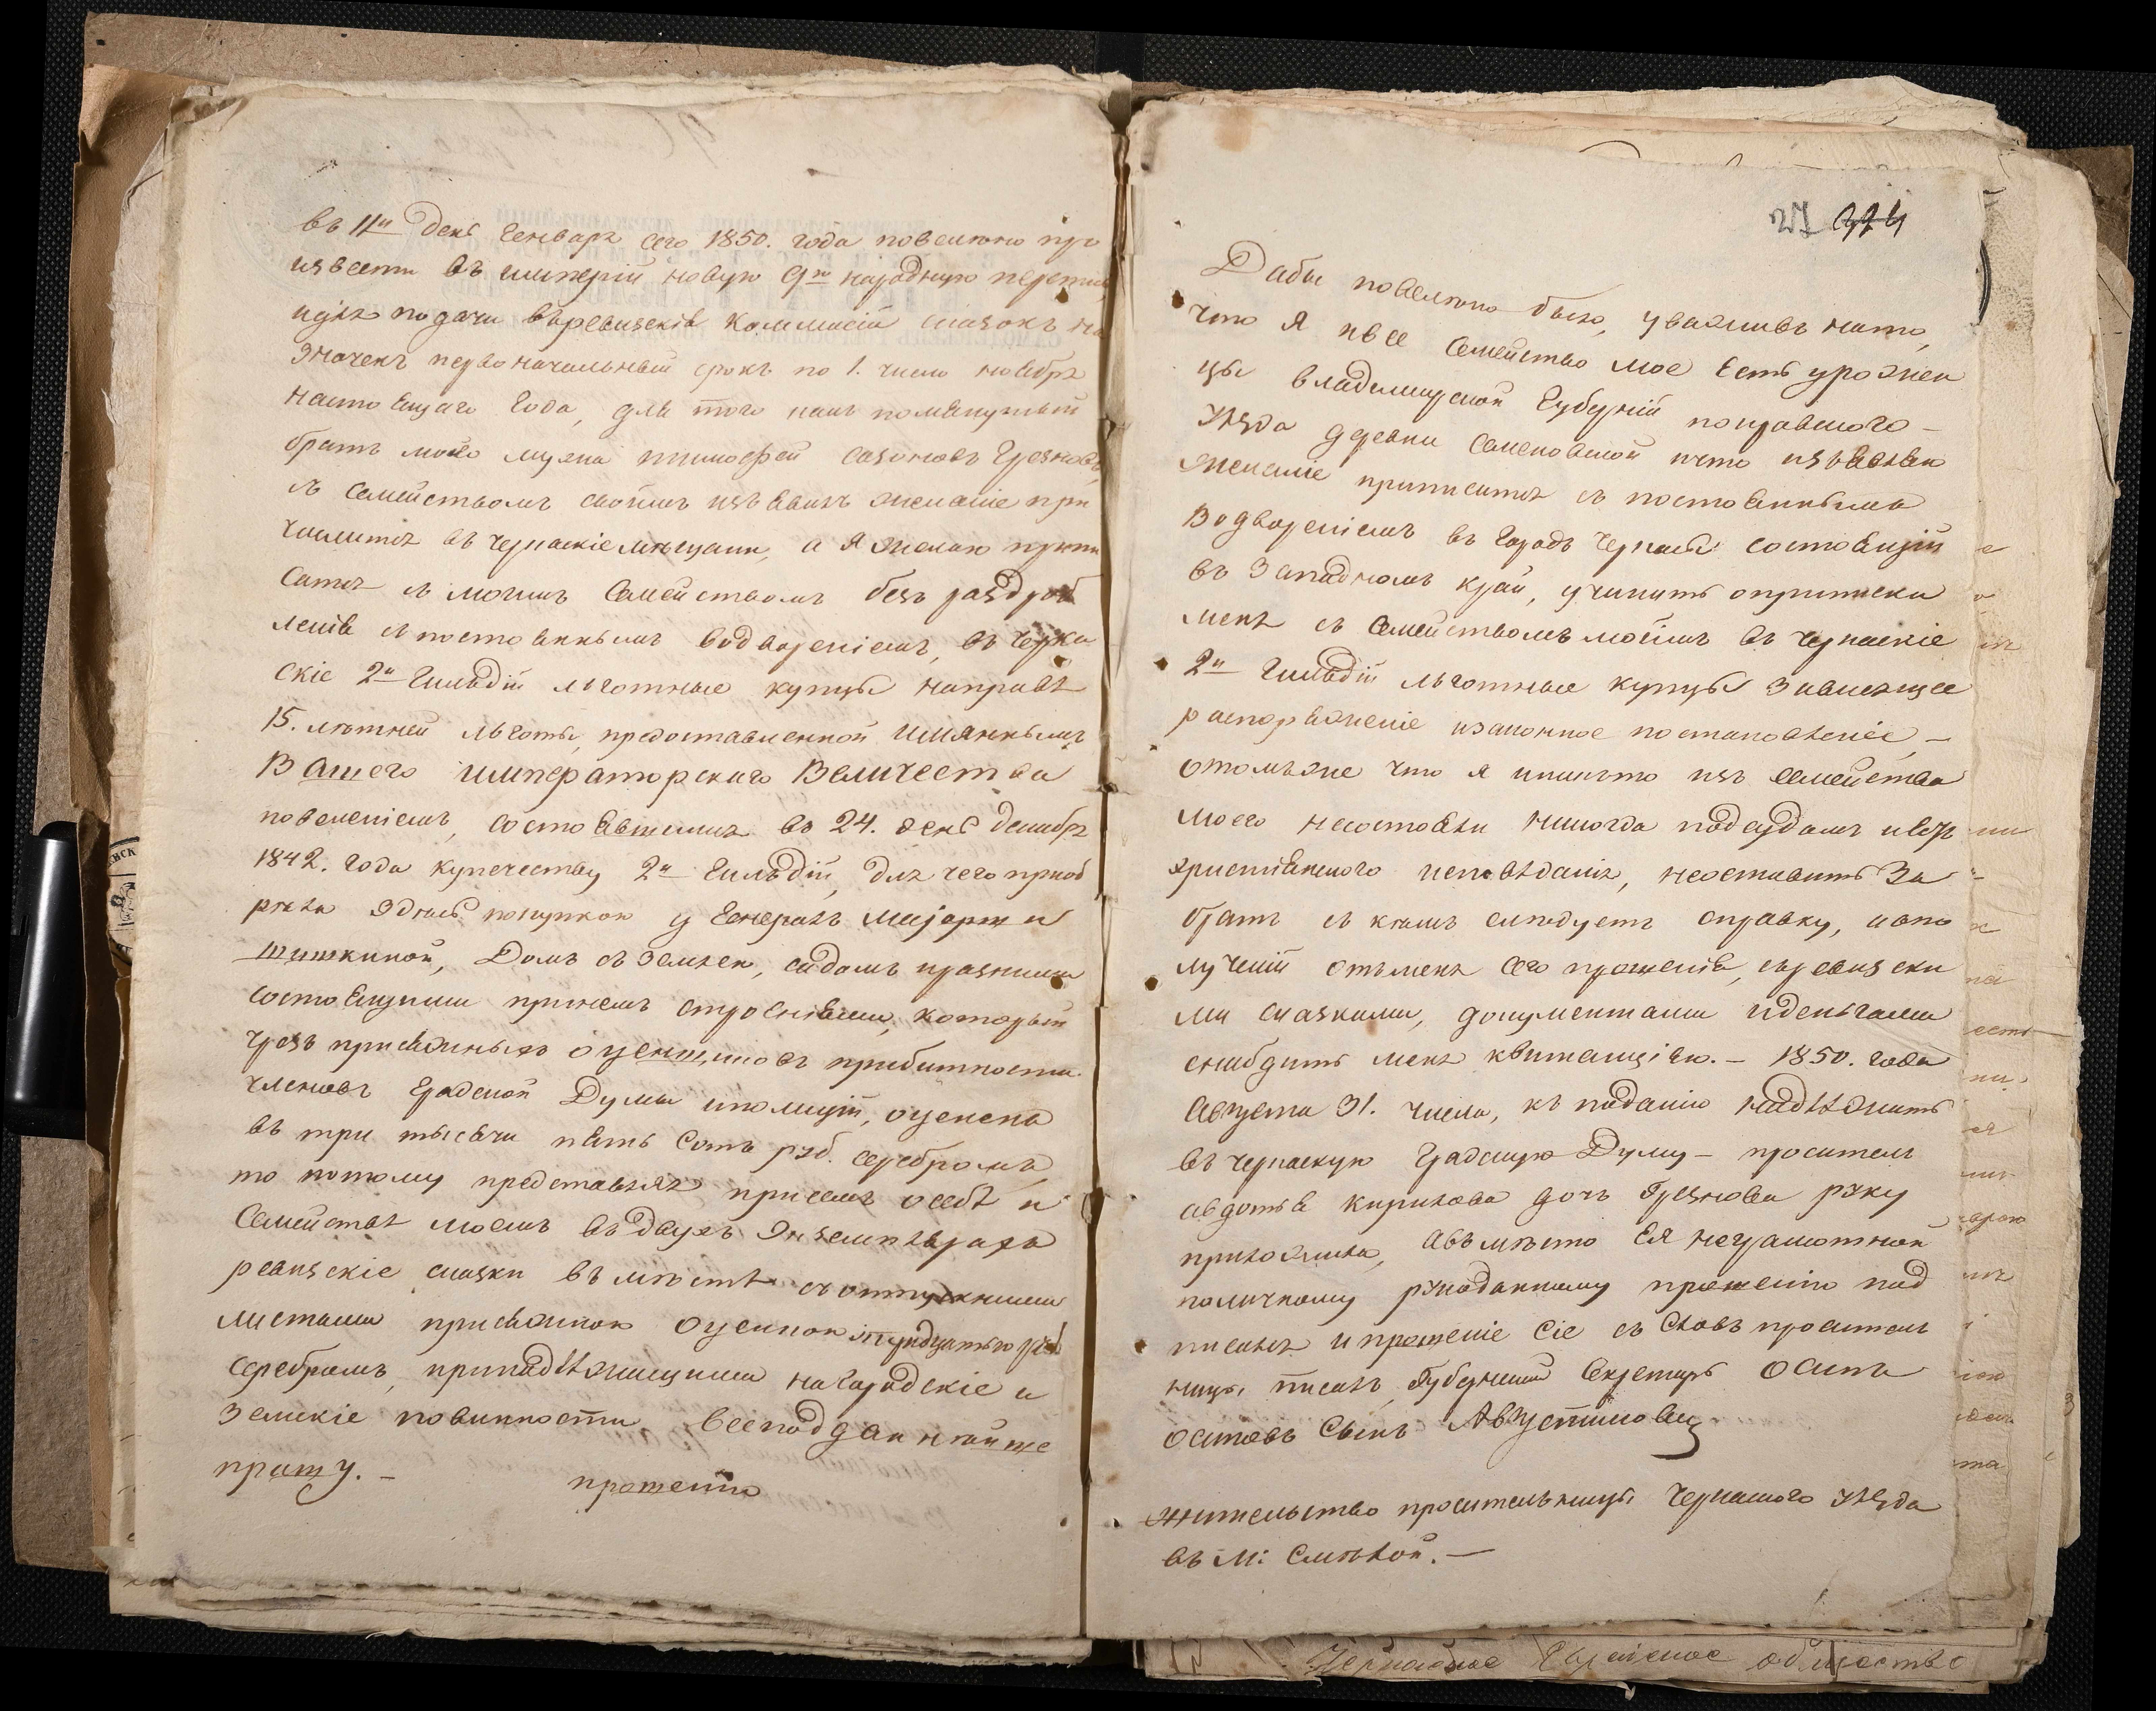 въ 11й день Генваря сего 1850. года повелено про
извести въ имперіи новую 9ю народную перепись
идля подачи въревизскіе Коммисіи сказокъ на
значенъ первоначальный срокъ по 1. число ноября
настоящаго года, для того какъ помянутый
братъ моего мужа тимофей сазоновъ Грезновъ
съ семействомъ своимъ изъявилъ желаніе при
числится въ черкаскіе мещани, а я желаю припи
сатся съ моимъ Семействомъ безъ раздроб
ленія спостояннымъ водвореніемъ, въ Черка
скіе 2й Гильдіи льготные купцы направѣ
15. лѣтней льготы, предоставленной имяннымъ
Вашего императорскаго Величества
повеленіемъ, состоявшимся въ 24. день декабря
1842. года купечеству 2й Гильдіи, для чего приоб
рѣла здѣсь покупкою у Генералъ Маіорши
Шишкиной, Домъ съ землею, садомъ иразними
состоящими принемъ строеніями, который
чрезъ присяжныхъ оценщиковъ прибытности
членовъ Градской Думы иполиціи, оценена
въ три тысячи пять Сотъ руб. серебромъ,
то потому представляя присемъ осебѣ и
Семействѣ моемъ въдвухъ экземплярахъ
ревизскіе сказки въмѣстѣ съ отпускними
листами присяжною оценкою итридцатью руб
серебромъ, принадлежащими нагородскіе и
земскіе повинности всеподданнѣйше
прошу. –
прошенію
27 274
Дабы повелено было, уваживъ нато,
что я ивсе Семейство мое есть урожен
цы владимирской Губерніи покравского –
уѣзда деревни Семеновской ичто изъявляю
желаніе приписатся съ постояннымъ
водвореніемъ въ городъ Черкасы состоящій
въ Западномъ край, учинить оприписки
меня съ Семействомъ моимъ въ Черкаскіе
2й Гильдіи льготные купцы зависящее
распоряженіе изаконное постановленіе, –
отомъже что я иникто изъ семейства
моего несостояли никогда подсудомъ ивсѣ
христіянского исповѣданія, неоставить За
брать съ кѣмъ следуетъ справку, ивпо
лученіи отъменя сего прошенія, съревизски
ми сказками, документами иденьгами
снабдить меня квитанціею. – 1850. года
Августа 31. числа, къ поданію надлежитъ
въ черкаскую Градскую Думу – проситель
авдотья кирилова дочь Грезнова руку
приложила, авъмѣсто Ея неграмотной
поличному рукоданному прошенію под
писалъ ипрошеніе сіе съ Словъ проситель
ницы писалъ Губернскій Секретарь Осипъ
осиповъ Сынъ Августиновичъ
жительство просительницы Черкаского уѣзда
въ М: Смѣлой. –
Черкаское Еврейское общество